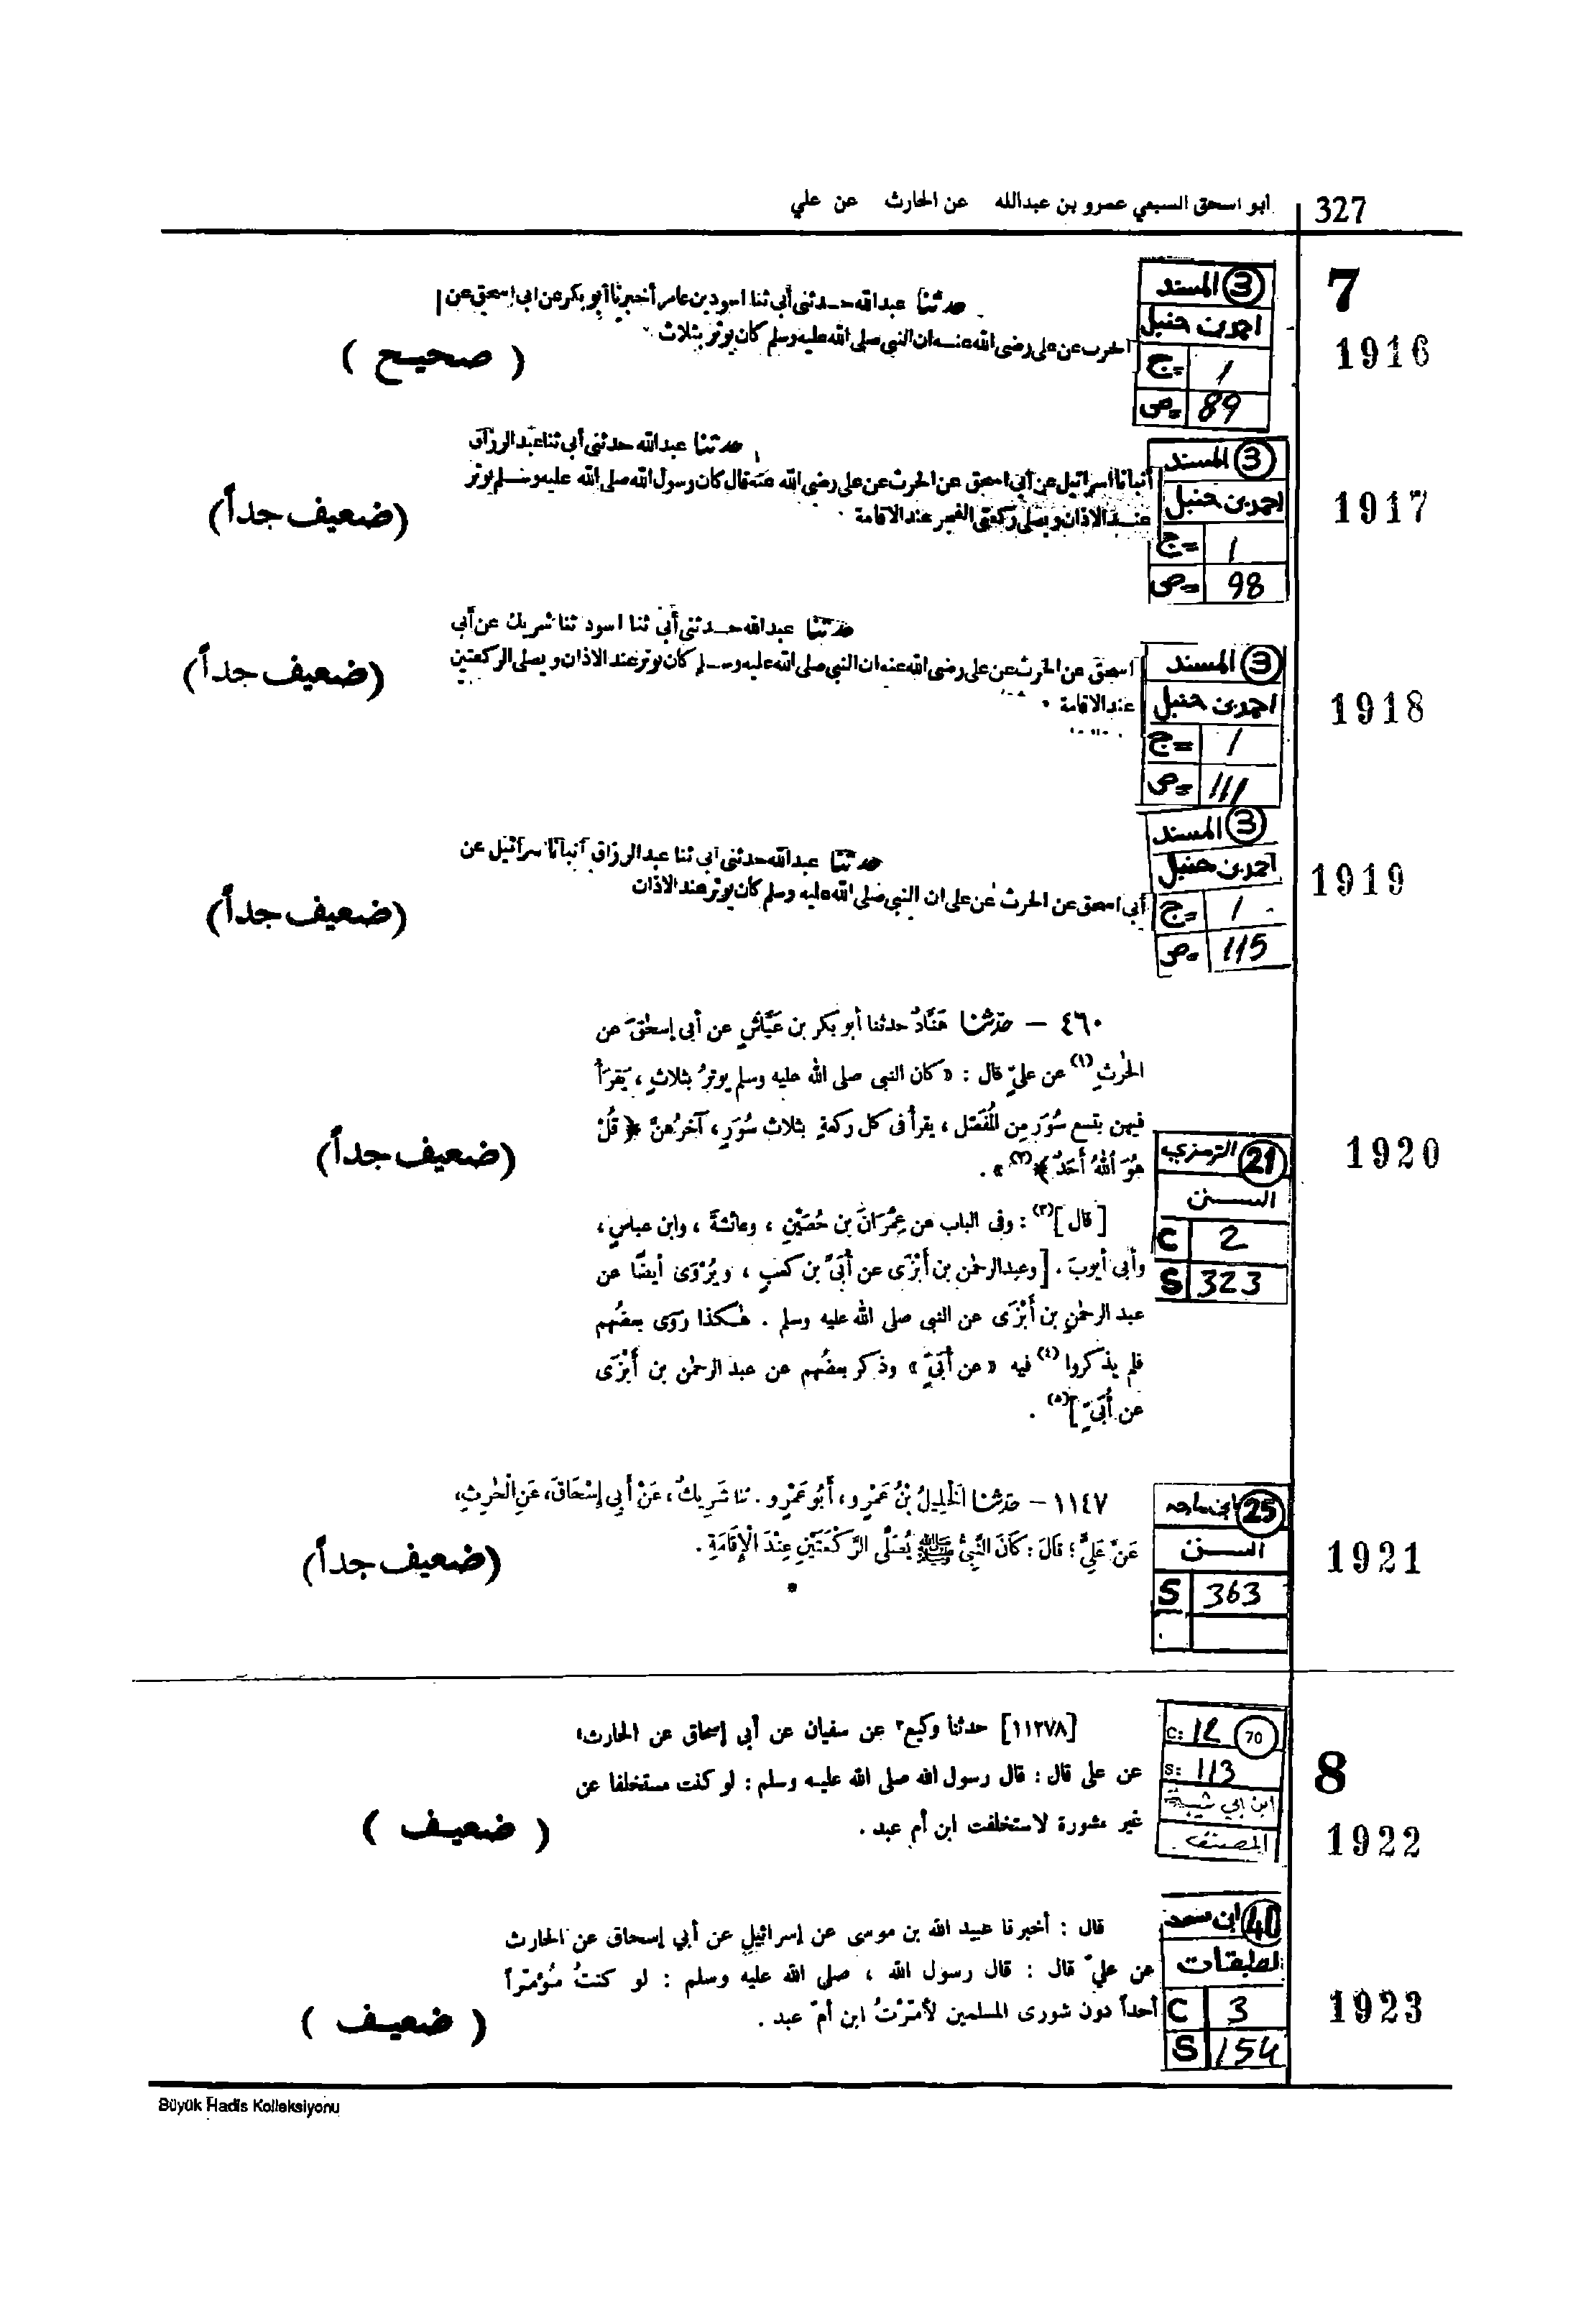 327 ابو اسحق السبعي عمرو بن عبدالله عن الحارث عن علي
7
3 المسند
احمد بن حنبل
ج= 1
ص= 89
1916
حدثنا عبدالله حدثني أبي ثنا اسود بن عامر أخبرنا أبو بكر عن ابي اسحق عن
الحرث عن علي رضي الله عنه ان النبي صلى الله عليه وسلم كان يوتر بثلاث
( صحيح )
3 المسند
احمد بن حنبل
ج= 1
ص= 98
1917
حدثنا عبدالله حدثني أبي ثنا عبد الرزاق
أنبأنا اسرائيل عن أبي اسحق عن الحرث عن علي رضي الله عنه قال كان رسول الله صلى الله عليه وسلم يوتر
عند الاذان ويصلي ركعتي الفجر عند الاقامة
(ضعيف جداً)
3 المسند
احمد بن حنبل
ج= 1
ص= 111
1918
حدثنا عبدالله حدثني أبي ثنا اسود ثنا شريك عن أبي
اسحق عن الحرث عن علي رضي الله عنه ان النبي صلى الله عليه وسلم كان يوتر عند الاذان ويصلي الركعتين
عند الاقامة
(ضعيف جداً)
3 المسند
احمد بن حنبل
ج= 1
ص= 115
1919
حدثنا عبدالله حدثني أبي ثنا عبد الرزاق أنبأنا اسرائيل عن
أبي اسحق عن الحرث عن علي ان النبي صلى الله عليه وسلم كان يوتر عند الاذان
(ضعيف جداً)
٤٦٠ – حَدَّثَنَا هَنَّادٌ حدثنا أبو بكر بن عَيَّاشٍ عن أبي إسحٰقَ عن
الحرثِ (١) عن عليٍّ قال : « كان النبي صلى الله عليه وسلم يوترُ بثلاثٍ ، يَقرَأُ
فيهن بتسع سُوَرٍ مِن المُفَصَّل ، يقرأ فى كل ركعةٍ بثلاث سُوَرٍ ، آخرُهنَّ ﴿ قُلْ
هُوَ اللّٰهُ أَحَدٌ ﴾ (٢) » .
21 الترمزي
السنن
C 2
S 323
1920
(ضعيف جداً)
[ قال ] (٣) : وفى الباب عن عِمْرَانَ بن حُصَيْنٍ ، وعائشةَ ، وابن عباسٍ ،
وأبي أيوبَ . [ وعبد الرحمٰن بن أَبْزَى عن أُبَيِّ بن كعبٍ ، ويُرْوَى أيضًا عن
عبد الرحمٰنِ بن أَبْزَى عن النبى صلى الله عليه وسلم . هٰكذا رَوَى بعضُهم
فلم يذكروا (٤) فيه « عن أُبَيٍّ » وذكر بعضُهم عن عبد الرحمٰن بن أَبْزَى
عن أُبَيٍّ ] (٥) .
25 ابن ماجه
السنن
S 363
1921
١١٤٧ – حَدَّثَنَا الْخَلِيلُ بْنُ عَمْرٍو، أَبُو عَمْرٍو . ثنا شَرِيكٌ، عَنْ أَبِي إِسْحَاقَ، عَنِ الْحٰرِثِ،
عَنْ عَلِيٍّ ؛ قَالَ : كَانَ النَّبِيُّ ﷺ يُصَلِّي الرَّكْعَتَيْنِ عِنْدَ الْإِقَامَةِ .
(ضعيف جداً)
8
C: 12 70
S: 113
ابن ابي شيبة
المصنف
1922
[١١٢٧٨] حدثنا وكيع ٣ عن سفيان عن أبي إسحاق عن الحارث ٤
عن على قال : قال رسول الله صلى الله عليه وسلم : لو كنت مستخلفا عن
غير مشورة لاستخلفت ابن أم عبد .
( ضعيف )
40 ابن سعد
الطبقات
C 3
S 154
1923
قال : أخبرنا عبيد الله بن موسى عن إسرائيل عن أبي إسحاق عن الحارث
عن عليّ قال : قال رسول الله ، صلى الله عليه وسلم : لو كنتُ مُؤمّراً
أحداً دون شورى المسلمين لأمّرْتُ ابن أمّ عبد .
( ضعيف )
Büyük Hadis Kolleksiyonu